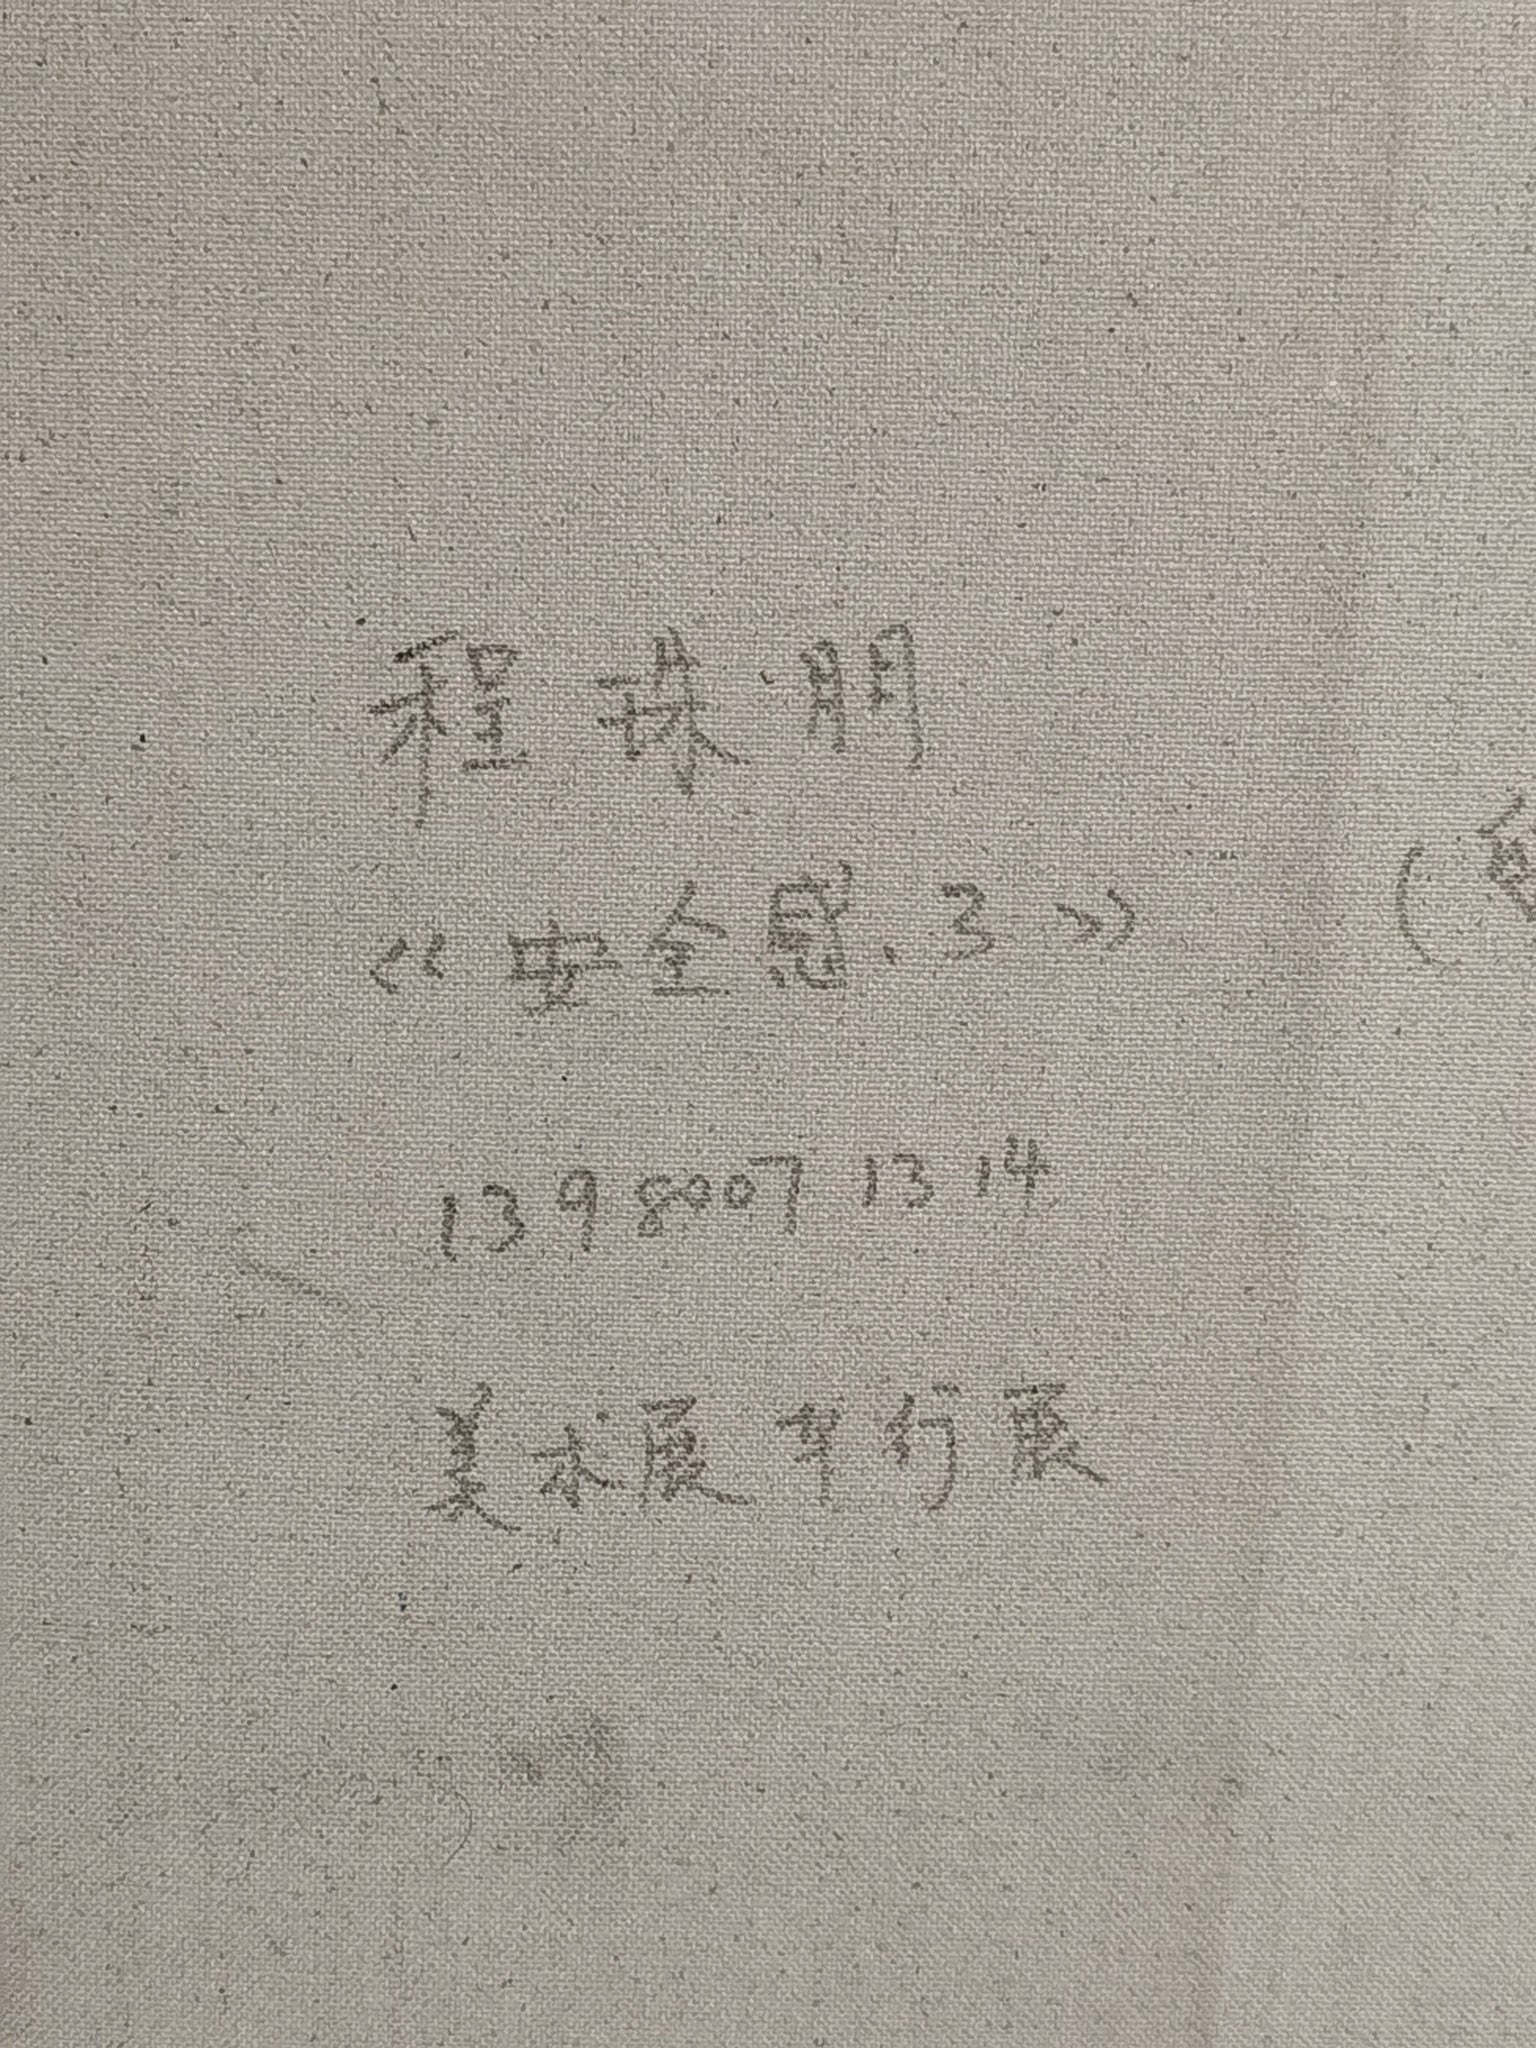 程珠朋
《安全感.3》
13980071314
美术展 平行展
(